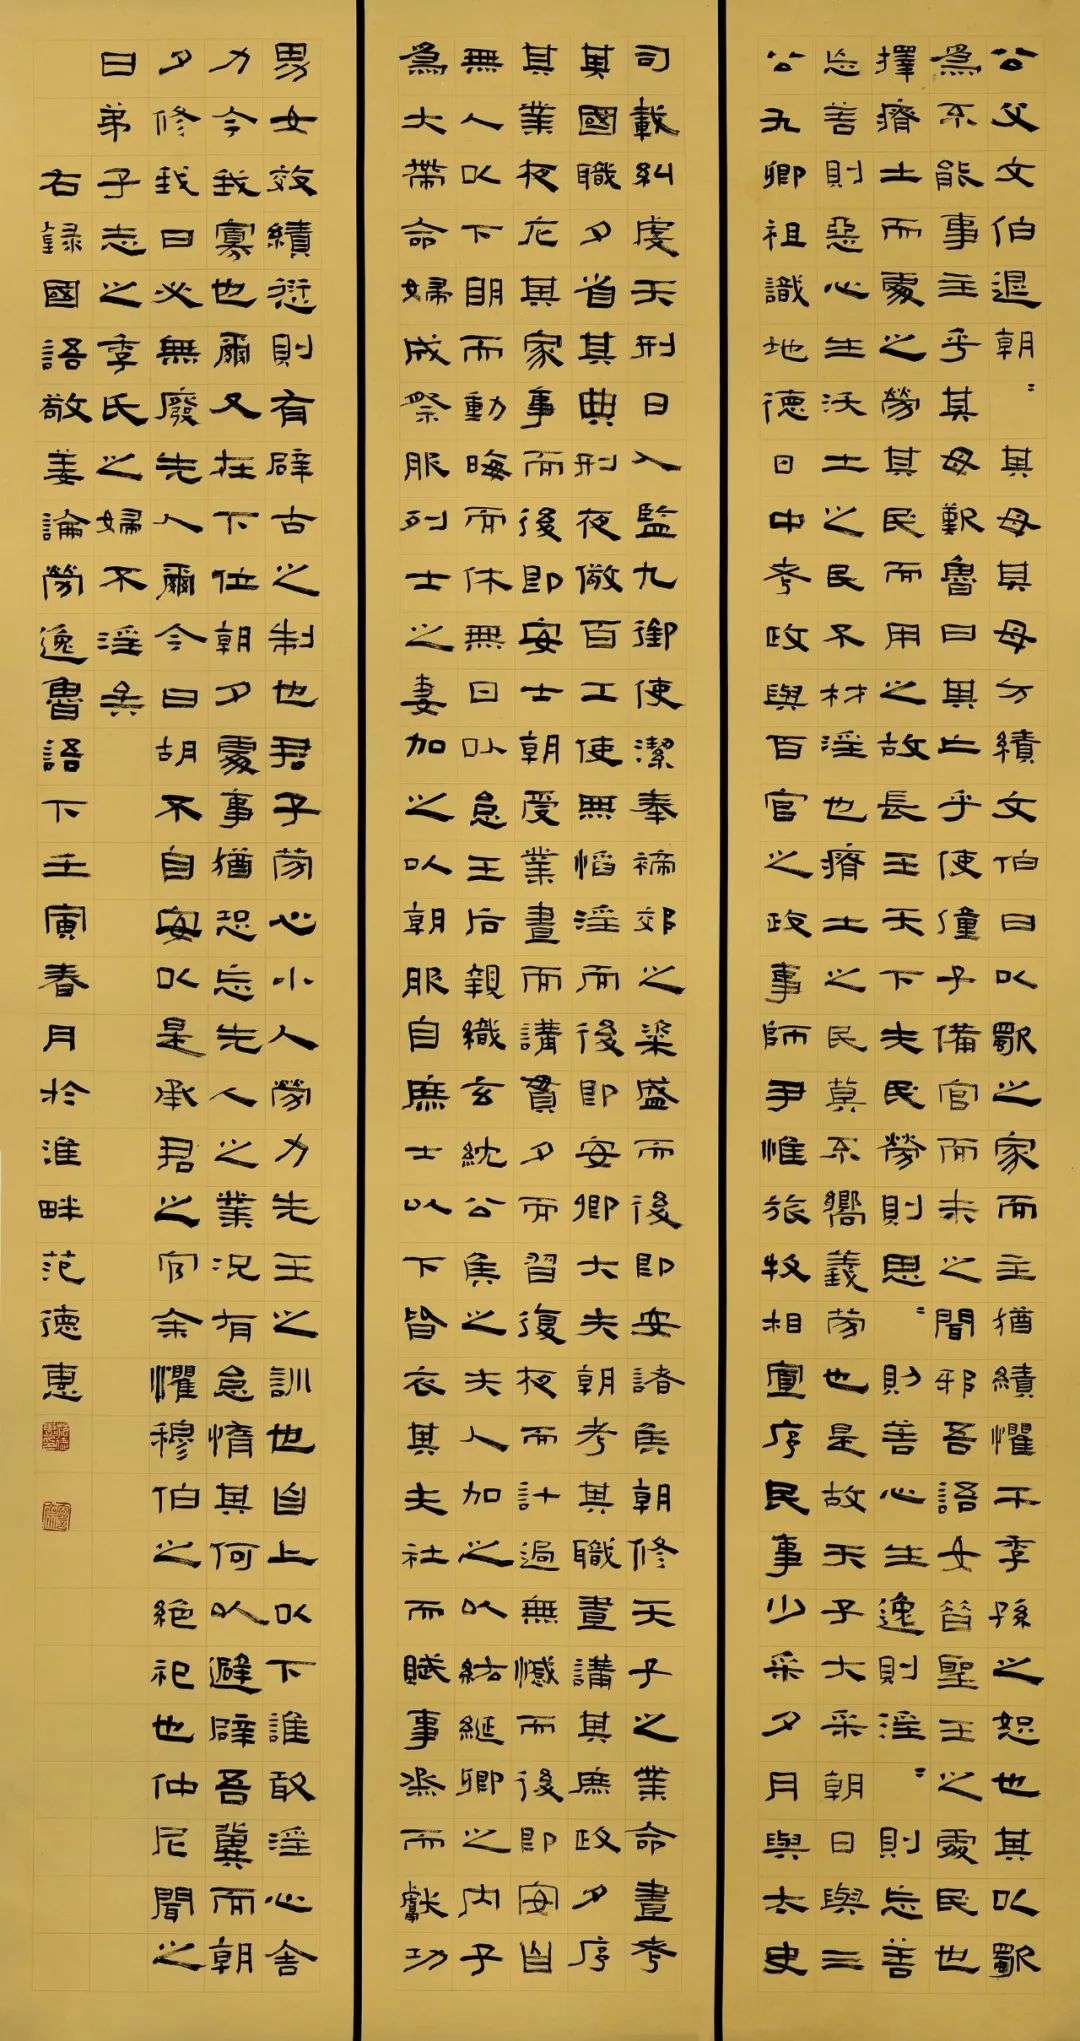 公父文伯退朝〻其母其母方績文伯曰以歜之家而主猶績懼干季孫之怒也其以歜
為不能事主乎其母歎魯曰其亡乎使僮子備官而未之聞邪吾語女昔聖王之處民也
擇瘠土而處之勞其民而用之故長王天下夫民勞則思〻則善心生逸則淫〻則忘善
忘善則惡心生沃土之民不材淫也瘠土之民莫不嚮義勞也是故天子大采朝日與三
公九卿祖識地德日中考政與百官之政事師尹惟旅牧相宣序民事少采夕月與太史
司載糾虔天刑日入監九御使潔奉禘郊之粢盛而後即安諸侯朝修天子之業命晝考
其國職夕省其典刑夜儆百工使無慆淫而後即安卿大夫朝考其職晝講其庶政夕序
其業夜庀其家事而後即安士朝受業晝而講貫夕而習復夜而計過無憾而後即安自
無人以下明而動晦而休無日以怠王后親織玄紞公侯之夫人加之以紘綖卿之內子
為大帶命婦成祭服列士之妻加之以朝服自庶士以下皆衣其夫社而賦事烝而獻功
男女效績愆則有辟古之制也君子勞心小人勞力先王之訓也自上以下誰敢淫心舍
力今我寡也爾又在下位朝夕處事猶恐忘先人之業況有怠惰其何以避辟吾冀而朝
夕修我曰必無廢先人爾今曰胡不自安以是承君之官余懼穆伯之絕祀也仲尼聞之
曰弟子志之季氏之婦不淫矣
右錄國語敬姜論勞逸魯語下壬寅春月於淮畔范德惠